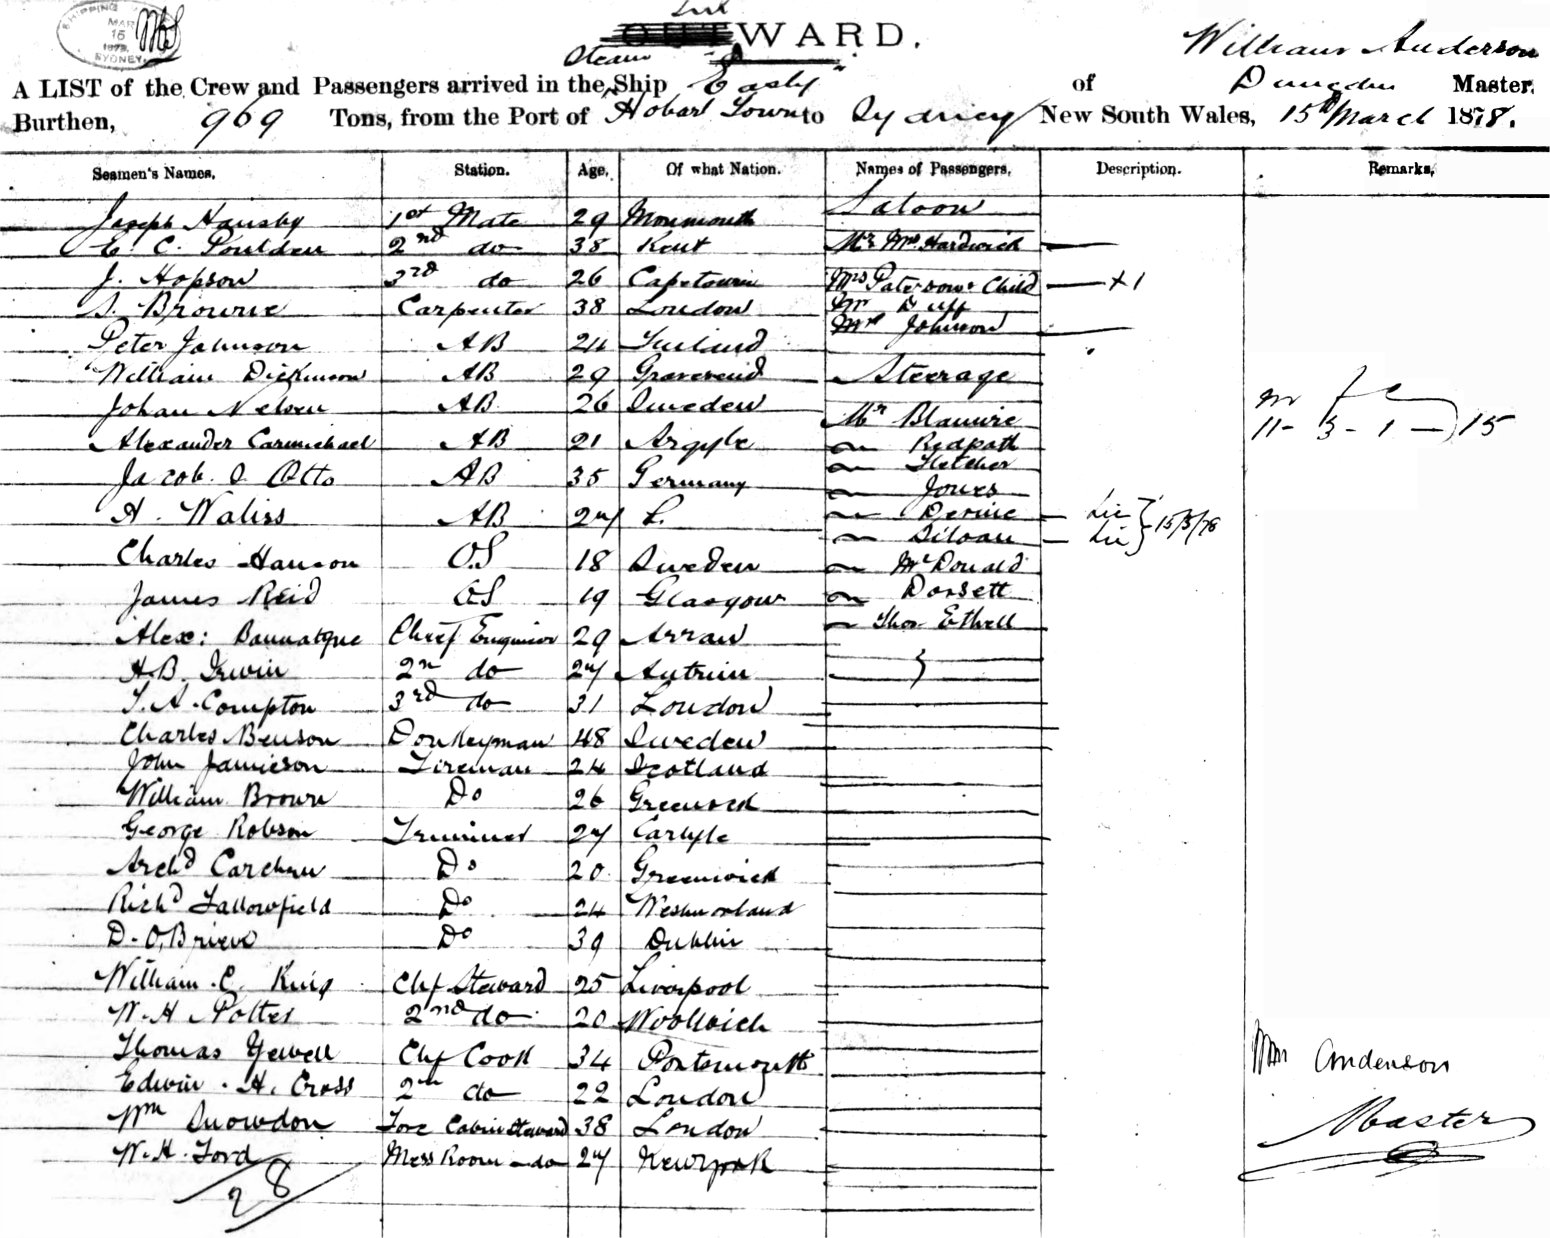 SHIPPING
MAR
15
1878
SYDNEY
WARD.
Steam
William Anderson
A LIST of the Crew and Passengers arrived in the Ship "Easby" of Master,
Burthen, 969 Tons, from the Port of Hobart Town to Sydney New South Wales, 15th March 1878.
Seamen's Names, Station. Age, Of what Nation. Names of Passengers, Description. Remarks,
Joseph Hansby 1st Mate 29 Monmouth Saloon
E. C. Poulden 2nd do 38 Kent Mr Mrs Hardwick
J. Hopson 3rd do 26 Capetown Mrs Paterson & Child x 1
S. Browne Carpenter 38 London Mr Duff
Peter Johnson AB 24 Finland Mrs Johnson
William Dickinson AB 29 Gravesend Steerage
Johan Nelsen AB 26 Sweden Mr Blamire
11 - 3 - 1 - 15
Alexander Carmichael AB 21 Argyle Redpath
Fletcher
Jacob. O Otto AB 35 Germany Jones
A. Waliss AB 27 Devine
Siloan 15/3/78
Charles Hanson OS 18 Sweden McDonald
James Reid OS 19 Glasgow Dorsett
Alex: Bannatyne Chief Engineer 29 Arran Thos Ethell
H.B. Irwin 2n do 27 Antrim
T. A. Compton 3rd do 31 London
Charles Benson Donkeyman 48 Sweden
John Jamieson Fireman 24 Scotland
William Brown Do 26 Greenock
George Robson Trimmer 27 Carlyle
Archd Do 20 Greenwich
Richd Fallowfield Do 24 Westmorland
D. O'Brien Do 39 Dublin
William C. King Chf Steward 25 Liverpool
W. H Potter 2nd do 20 Woolwich
Thomas Yewell Chf Cook 34 Portsmouth
Edwin. H. Cross 2nd do 22 London
Wm Snowdon Fore Cabin Steward 38 London
W. H. Ford Mess Room do 27 New York
28
Wm Anderson
Master